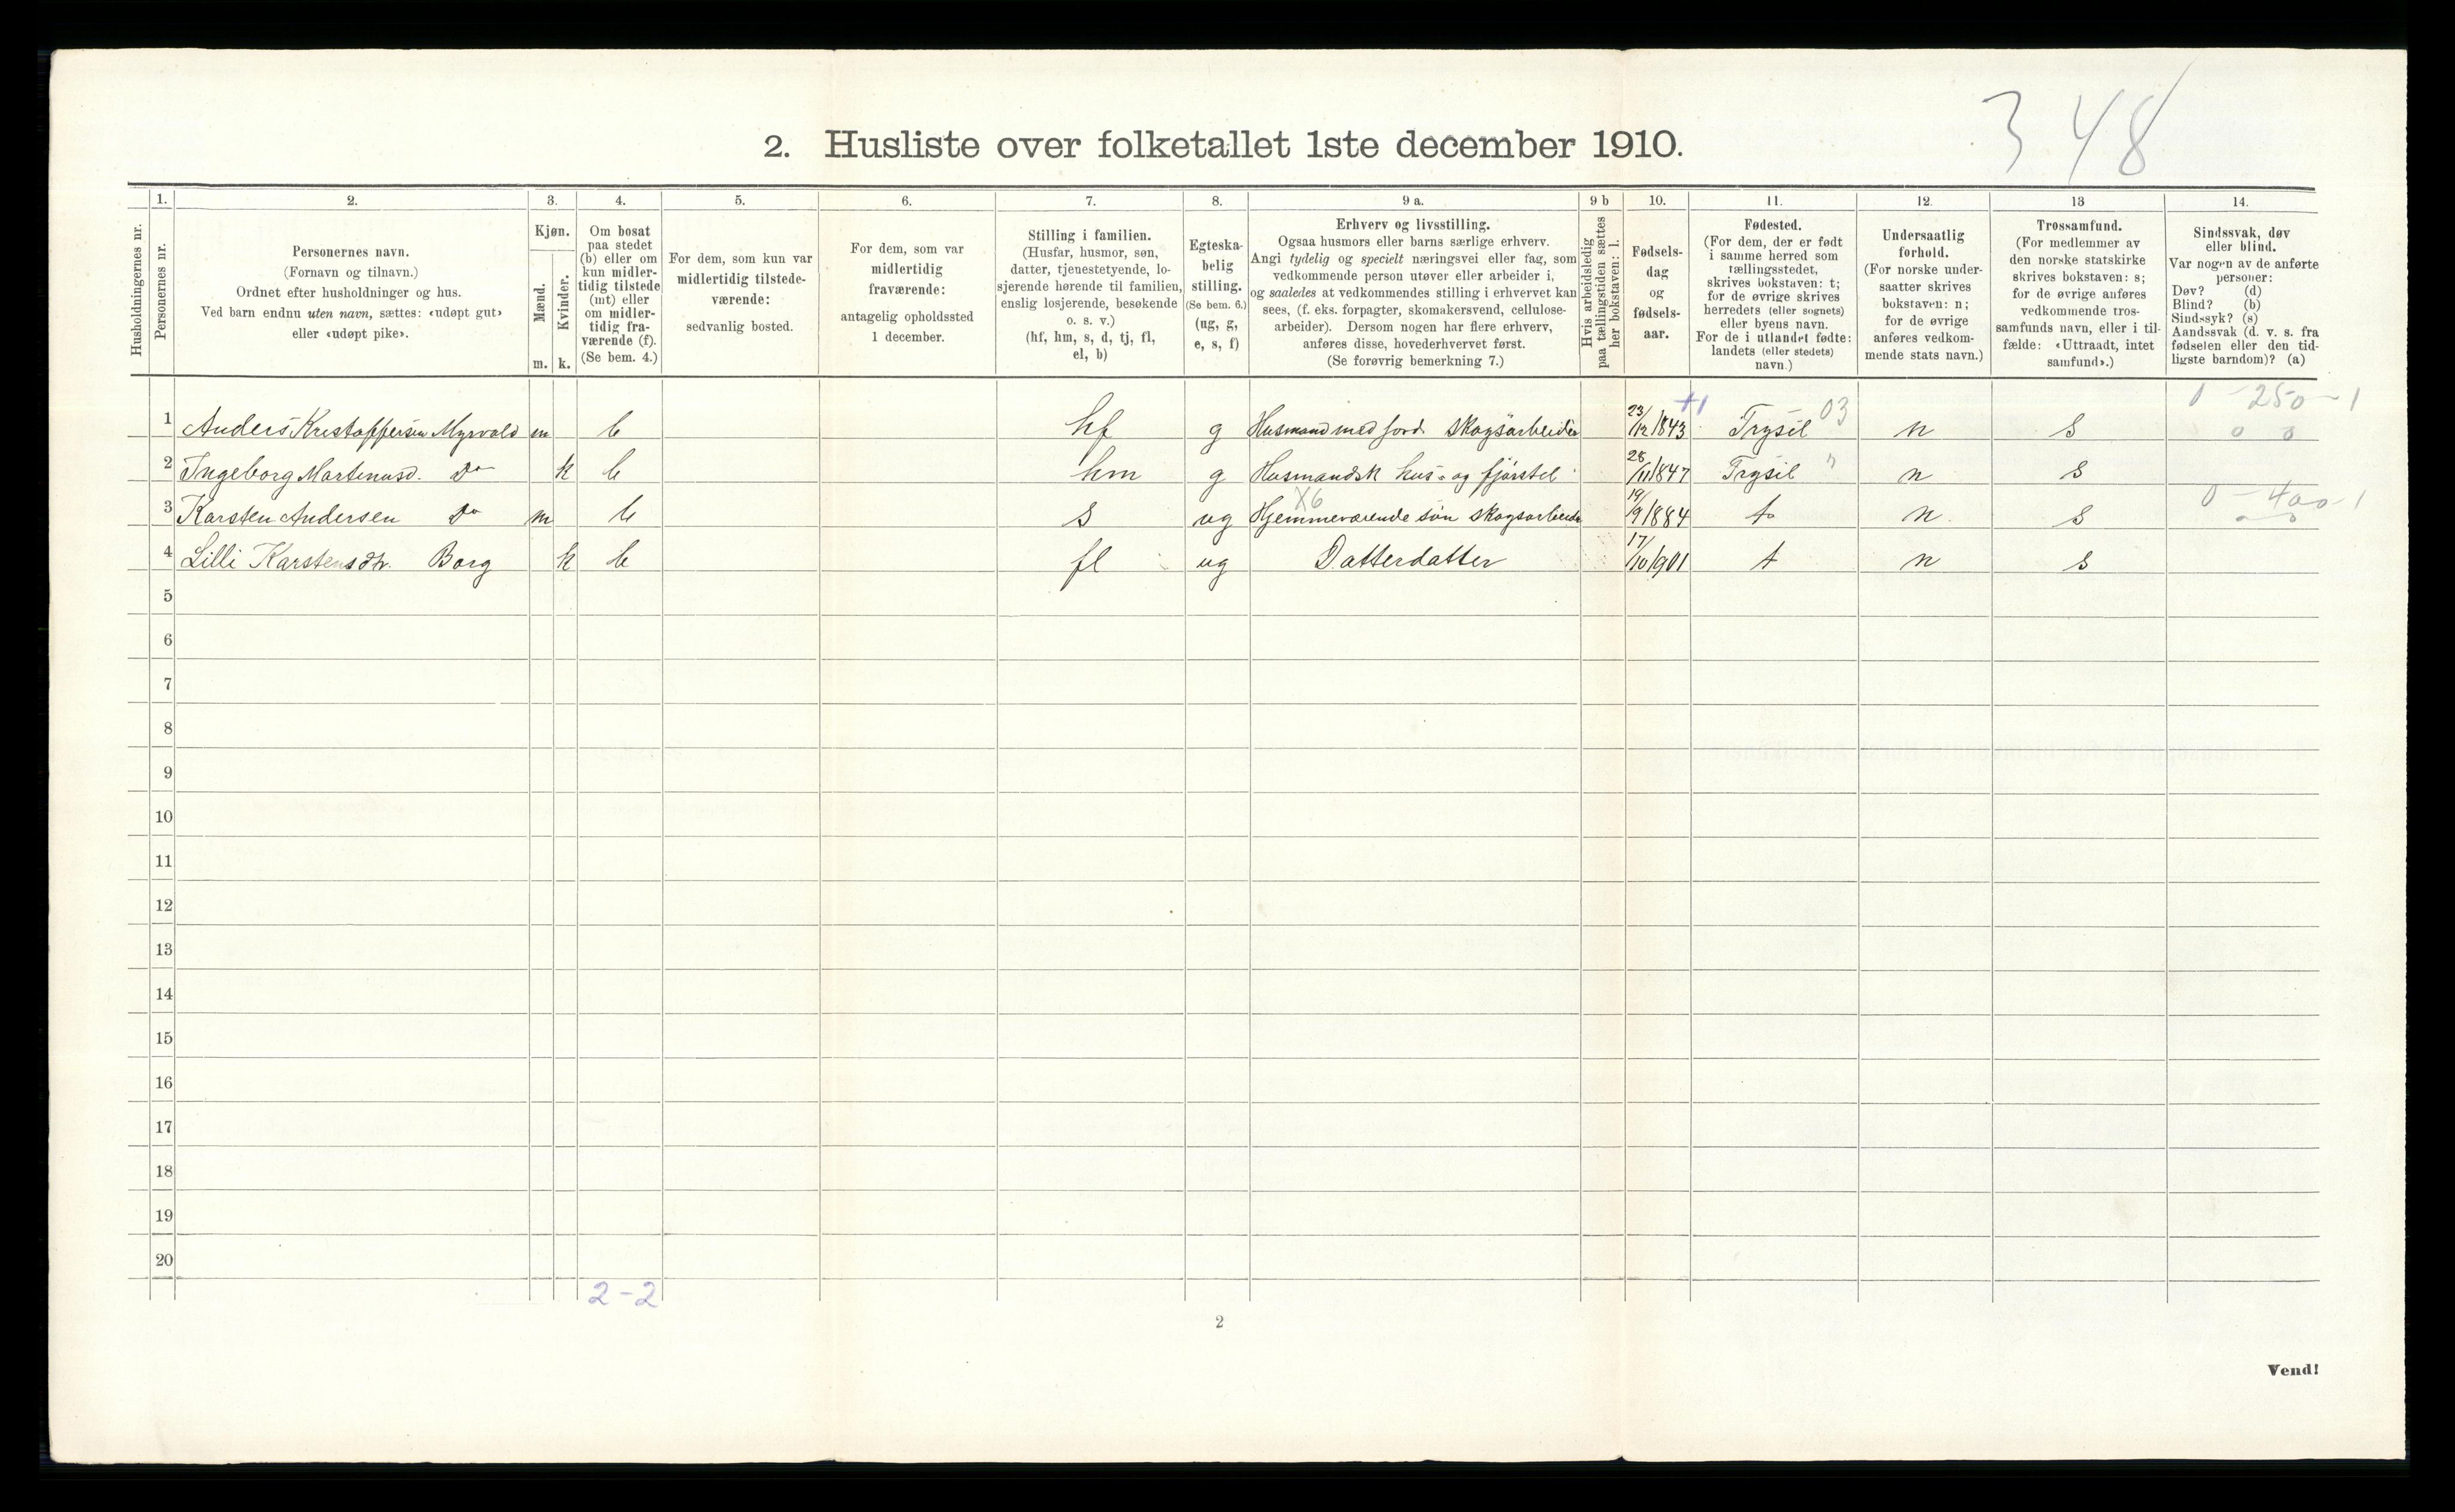 348
2. Husliste over folketallet 1ste december 1910.
Husholdningernes nr.
1.
Personernes nr.
2.
Personernes navn.
(Fornavn og tilnavn.)
Ordnet efter husholdninger og hus.
Ved barn endnu uten navn, sættes: «udøpt gut»
eller «udøpt pike».
3.
Kjøn.
Mænd.
Kvinder.
m. k.
4.
Om bosat
paa stedet
(b) eller om
kun midler-
tidig tilstede
(mt) eller
om midler-
tidig fra-
værende (f).
(Se bem. 4.)
5.
For dem, som kun var
midlertidig tilstede-
værende:
sedvanlig bosted.
6.
For dem, som var
midlertidig
fraværende:
antagelig opholdssted
1 december.
7.
Stilling i familien.
(Husfar, husmor, søn,
datter, tjenestetyende, lo-
sjerende hørende til familien,
enslig losjerende, besøkende
o. s. v.)
(hf, hm, s, d, tj, fl,
el, b)
8.
Egteska-
belig
stilling.
(Se bem. 6.)
(ug, g,
e, s, f)
9 a.
Erhverv og livsstilling.
Ogsaa husmors eller barns særlige erhverv.
Angi tydelig og specielt næringsvei eller fag, som
vedkommende person utøver eller arbeider i,
og saaledes at vedkommendes stilling i erhvervet kan
sees, (f. eks. forpagter, skomakersvend, cellulose-
arbeider). Dersom nogen har flere erhverv,
anføres disse, hovederhvervet først.
(Se forøvrig bemerkning 7.)
9 b
Hvis arbeidsledig
paa tællingstiden sættes
her bokstaven: l.
10.
Fødsels-
dag
og
fødsels-
aar.
11.
Fødested.
(For dem, der er født
i samme herred som
tællingsstedet,
skrives bokstaven: t;
for de øvrige skrives
herredets (eller sognets)
eller byens navn.
For de i utlandet fødte:
landets (eller stedets)
navn.)
12.
Undersaatlig
forhold.
(For norske under-
saatter skrives
bokstaven: n;
for de øvrige
anføres vedkom-
mende stats navn.)
13
Trossamfund.
(For medlemmer av
den norske statskirke
skrives bokstaven: s;
for de øvrige anføres
vedkommende tros-
samfunds navn, eller i til-
fælde: «Uttraadt, intet
samfund».)
14.
Sindssvak, døv
eller blind.
Var nogen av de anførte
personer:
Døv? (d)
Blind? (b)
Sindssyk? (s)
Aandssvak (d. v. s. fra
fødselen eller den tid-
ligste barndom)? (a)
0 - 250 - 1
1 Anders Kristoffersen Myrvold m b hf g Husmand med jord. Skogsarbeider 23/12 1843 +1 Trysil 03 n s 0 0
2 Ingeborg Martinusd. Do k b hm g Husmandsk hus- og fjørstel 28/11 1847 Trysil " n s
X6 0 - 400 - 1
3 Karsten Andersen Do m b s ug Hjemmeværende søn skogsarbeider 19/9 1884 t n s
4 Lilli Karstensdtr. Borg k b fl ug Datterdatter 17/10 1901 t n s
5
6
7
8
9
10
11
12
13
14
15
16
17
18
19
20
2-2
2
Vend!